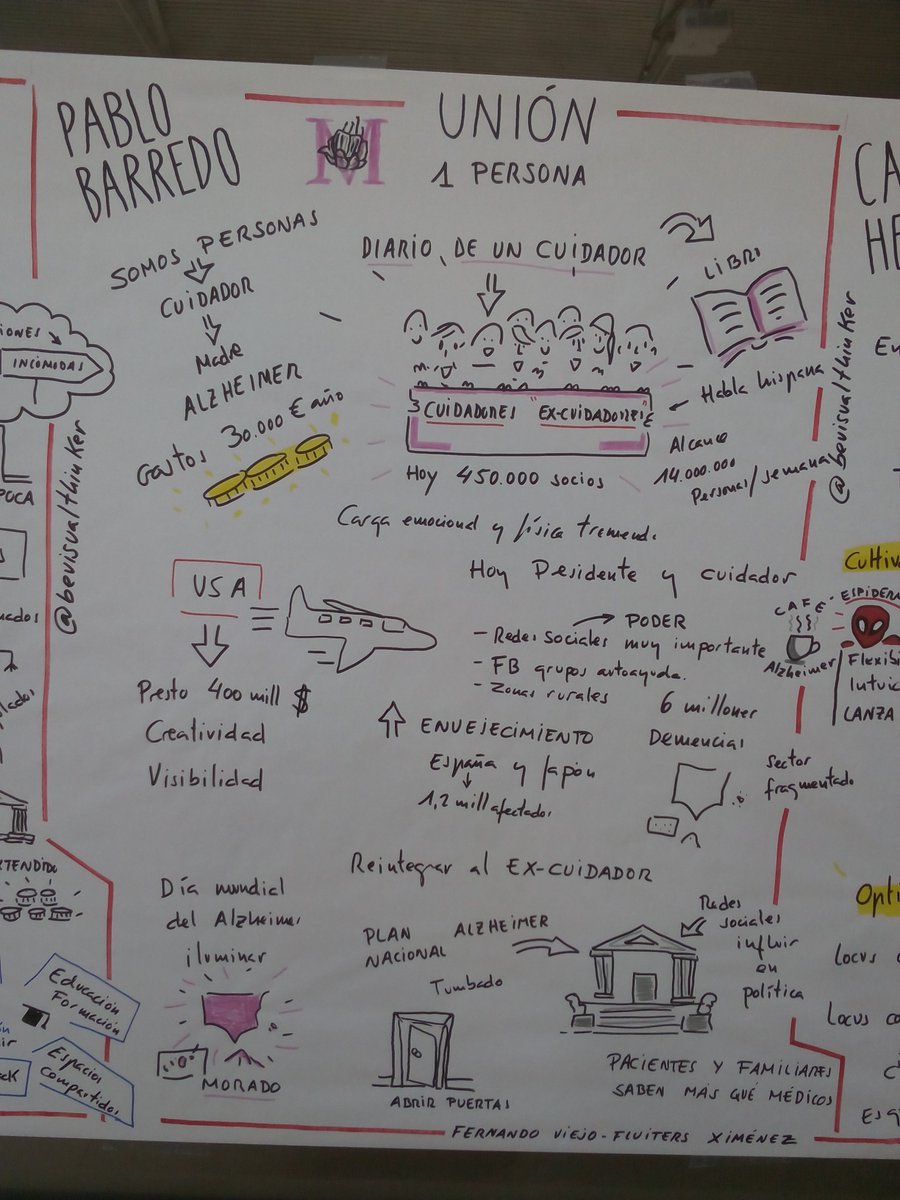 PABLO
BARREDO
M
UNIÓN
1 PERSONA
SOMOS PERSONAS
CUIDADOR
Madre
ALZHEIMER
Gastos 30.000 € año
DIARIO DE UN CUIDADOR
LIBRO
CUIDADORES "EX-CUIDADORES"
Habla hispana
Hoy 450.000 socios
Alcance
14.000.000
Personas/semana
Carga emocional y física tremenda
Hoy Presidente y cuidador
USA
Presto 400 mill $
Creatividad
Visibilidad
PODER
- Redes sociales muy importante
- FB grupos autoayuda.
- Zonas rurales
6 millones
Demencias
ENVEJECIMIENTO
España y Japón
1,2 mill afectados
sector
fragmentado
Reintegrar al EX-CUIDADOR
Día mundial
del Alzheimer
iluminar
MORADO
PLAN
NACIONAL
ALZHEIMER
Tumbado
ABRIR PUERTAS
Redes
sociales
influir
en
política
PACIENTES Y FAMILIARES
SABEN MÁS QUÉ MÉDICOS
FERNANDO VIEJO-FLUITERS XIMÉNEZ
@bevisualthinker
@bevisualthinker
CAFÉ
Alzheimer
INCÓMODAS
Educación
Formación
Espacios
Compartidos
CA
HE
Cultiva
LANZA
Locus
Locus